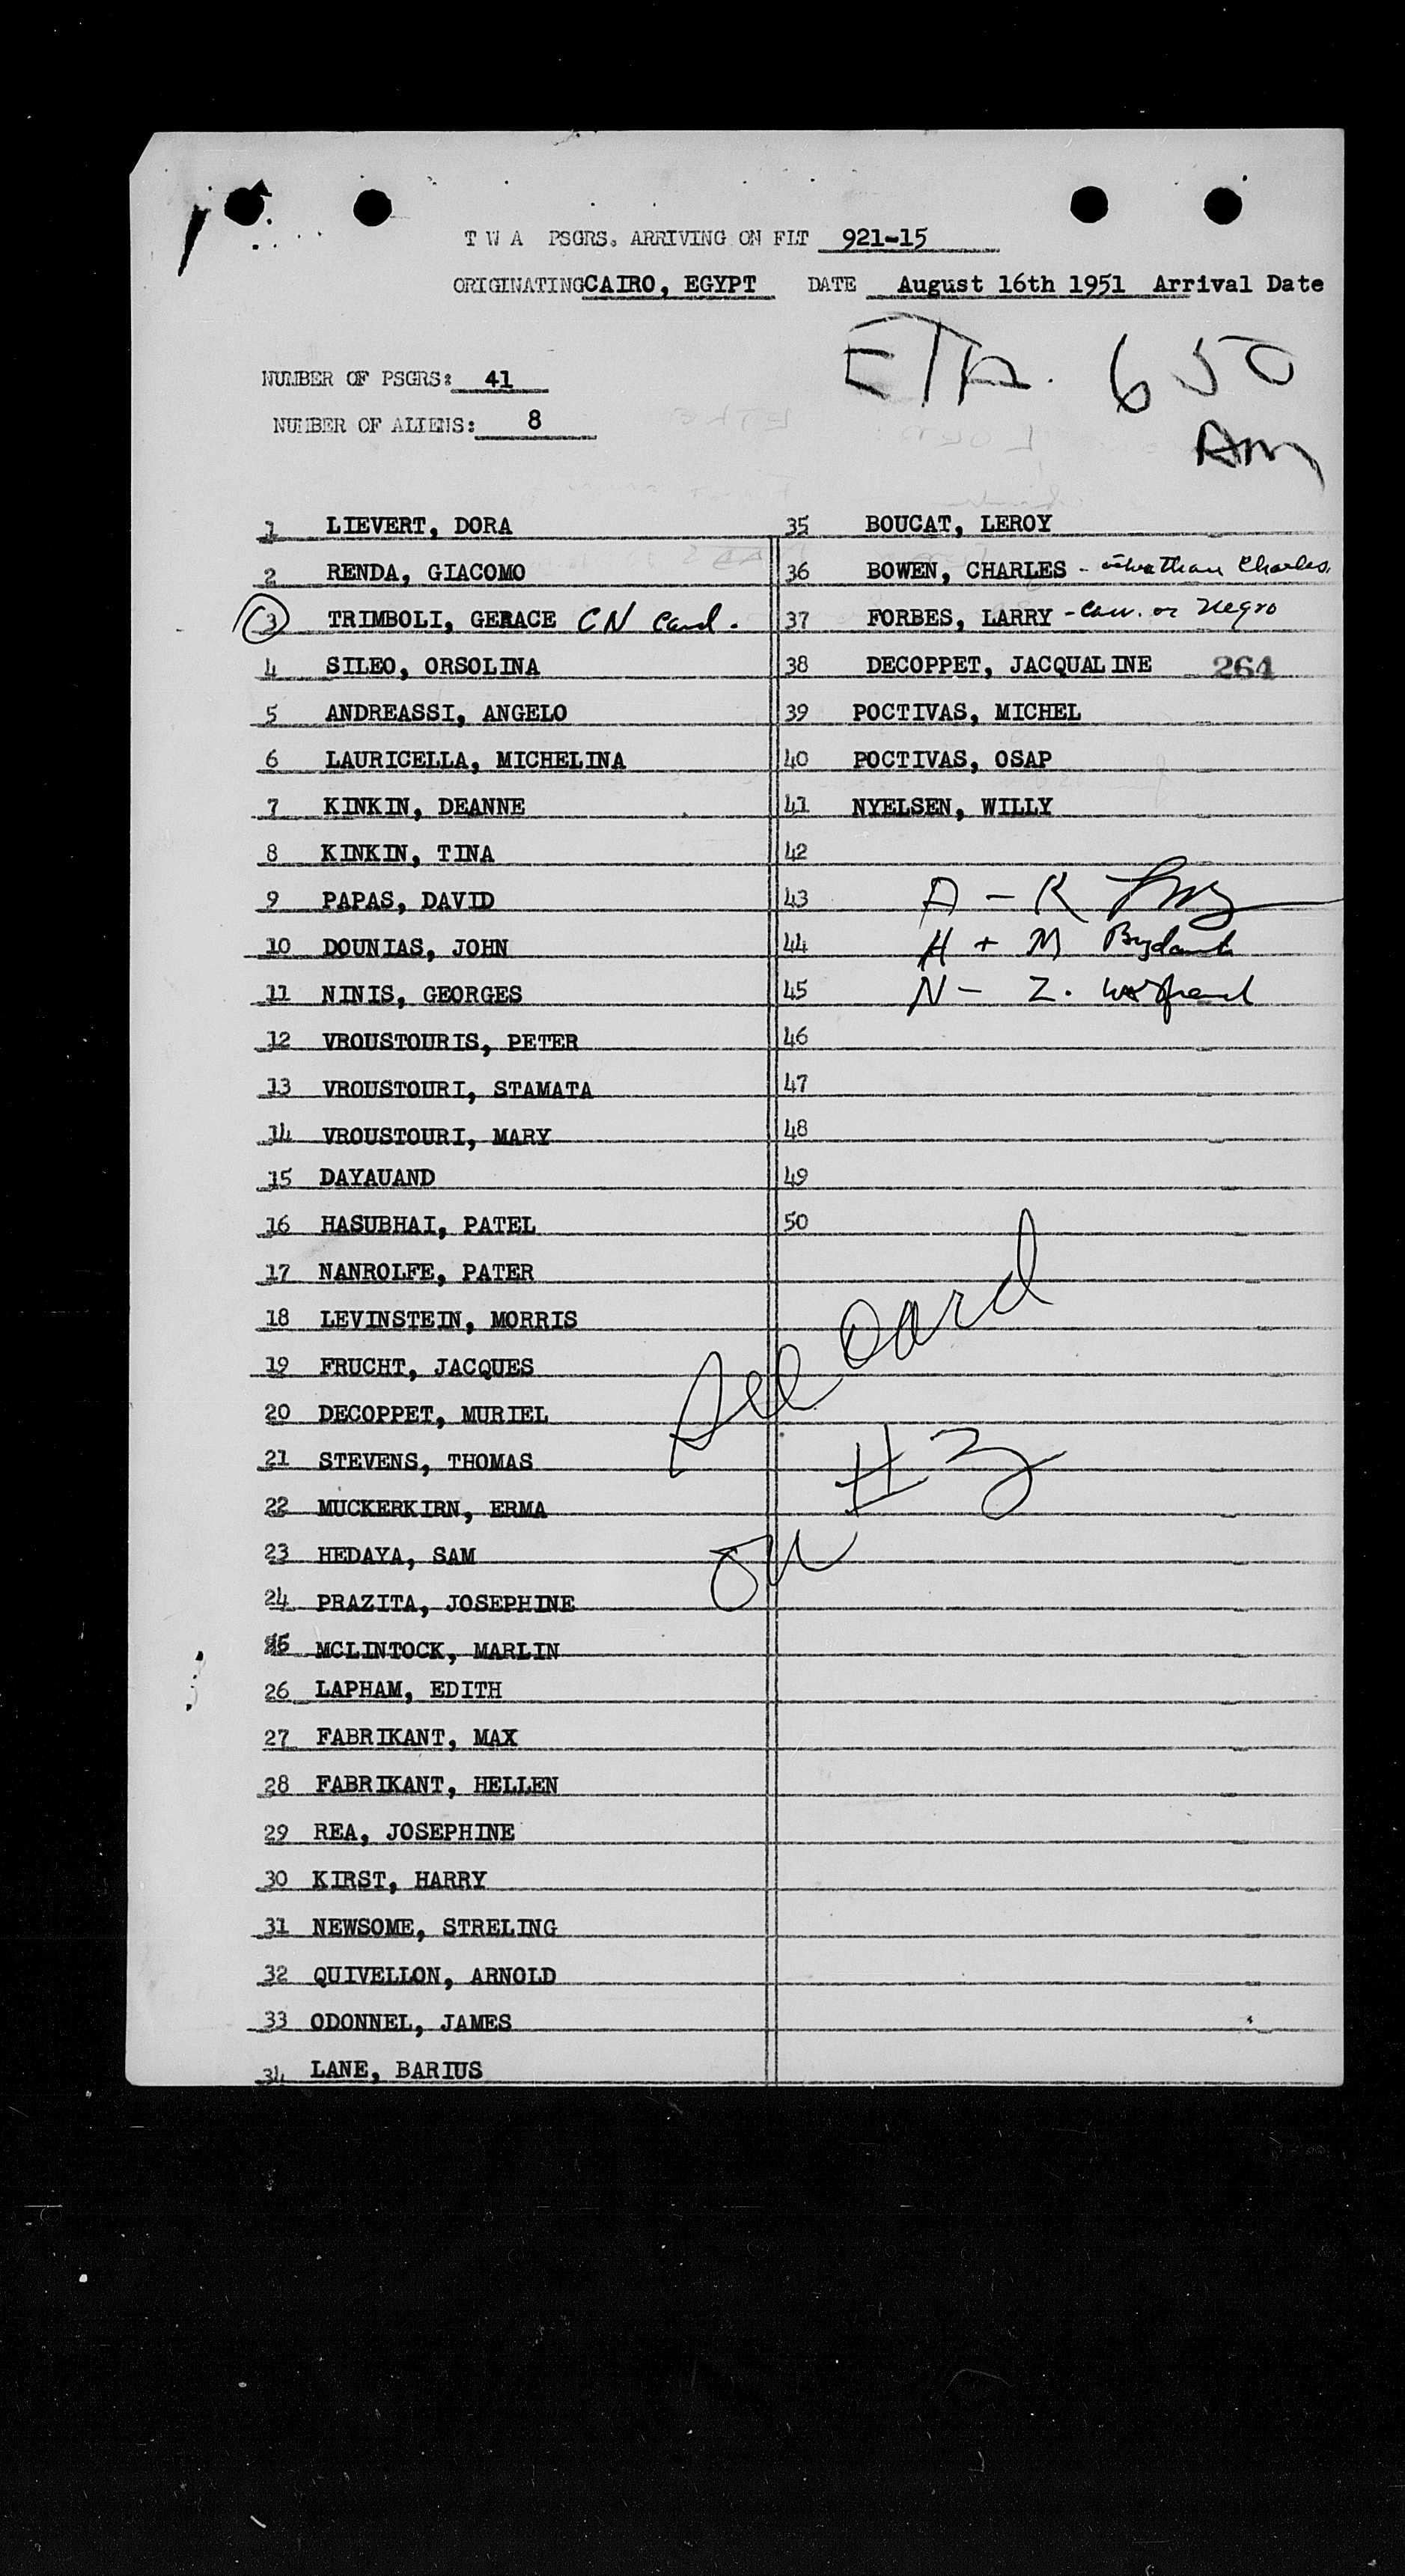 T W A PSGRS. ARRIVING ON FLT 921-15
ORIGINATING CAIRO, EGYPT DATE August 16th 1951 Arrival Date
ETA. 650
AM
NUMBER OF PSGRS: 41
NUMBER OF ALIENS: 8
1 LIEVERT, DORA
2 RENDA, GIACOMO
3 TRIMBOLI, GERACE CN Card.
4 SILEO, ORSOLINA
5 ANDREASSI, ANGELO
6 LAURICELLA, MICHELINA
7 KINKIN, DEANNE
8 KINKIN, TINA
9 PAPAS, DAVID
10 DOUNIAS, JOHN
11 NINIS, GEORGES
12 VROUSTOURIS, PETER
13 VROUSTOURI, STAMATA
14 VROUSTOURI, MARY
15 DAYAUAND
16 HASUBHAI, PATEL
17 NANROLFE, PATER
18 LEVINSTEIN, MORRIS
19 FRUCHT, JACQUES
20 DECOPPET, MURIEL
21 STEVENS, THOMAS
22 MUCKERKIRN, ERMA
23 HEDAYA, SAM
24 PRAZITA, JOSEPHINE
25 MCLINTOCK, MARLIN
26 LAPHAM, EDITH
27 FABRIKANT, MAX
28 FABRIKANT, HELLEN
29 REA, JOSEPHINE
30 KIRST, HARRY
31 NEWSOME, STRELING
32 QUIVELLON, ARNOLD
33 ODONNEL, JAMES
34 LANE, BARIUS
35 BOUCAT, LEROY
36 BOWEN, CHARLES - Charles
37 FORBES, LARRY - or Negro
38 DECOPPET, JACQUALINE 264
39 POCTIVAS, MICHEL
40 POCTIVAS, OSAP
41 NYELSEN, WILLY
42
43 A - K
44 H + M
45 N - Z.
46
47
48
49
50
See card
on #3